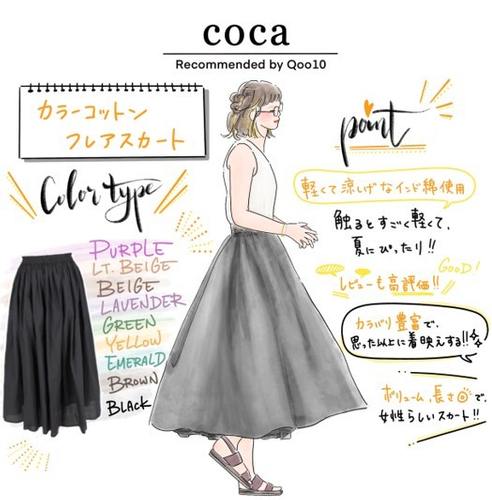 coca
Recommended by Qoo10
カラーコットン
フレアスカート
Color type
PURPLE
LT. BEIGE
BEIGE
LAVENDER
GREEN
YELLOW
EMERALD
BROWN
BLACK
point
軽くて涼しげなインド綿使用
触るとすごく軽くて、
夏にぴったり!!
GOOD!
レビューも高評価!!
カラバリ豊富で、
思った以上に着映えする!!
ボリューム、長さ◎で、
女性らしいスカート!!